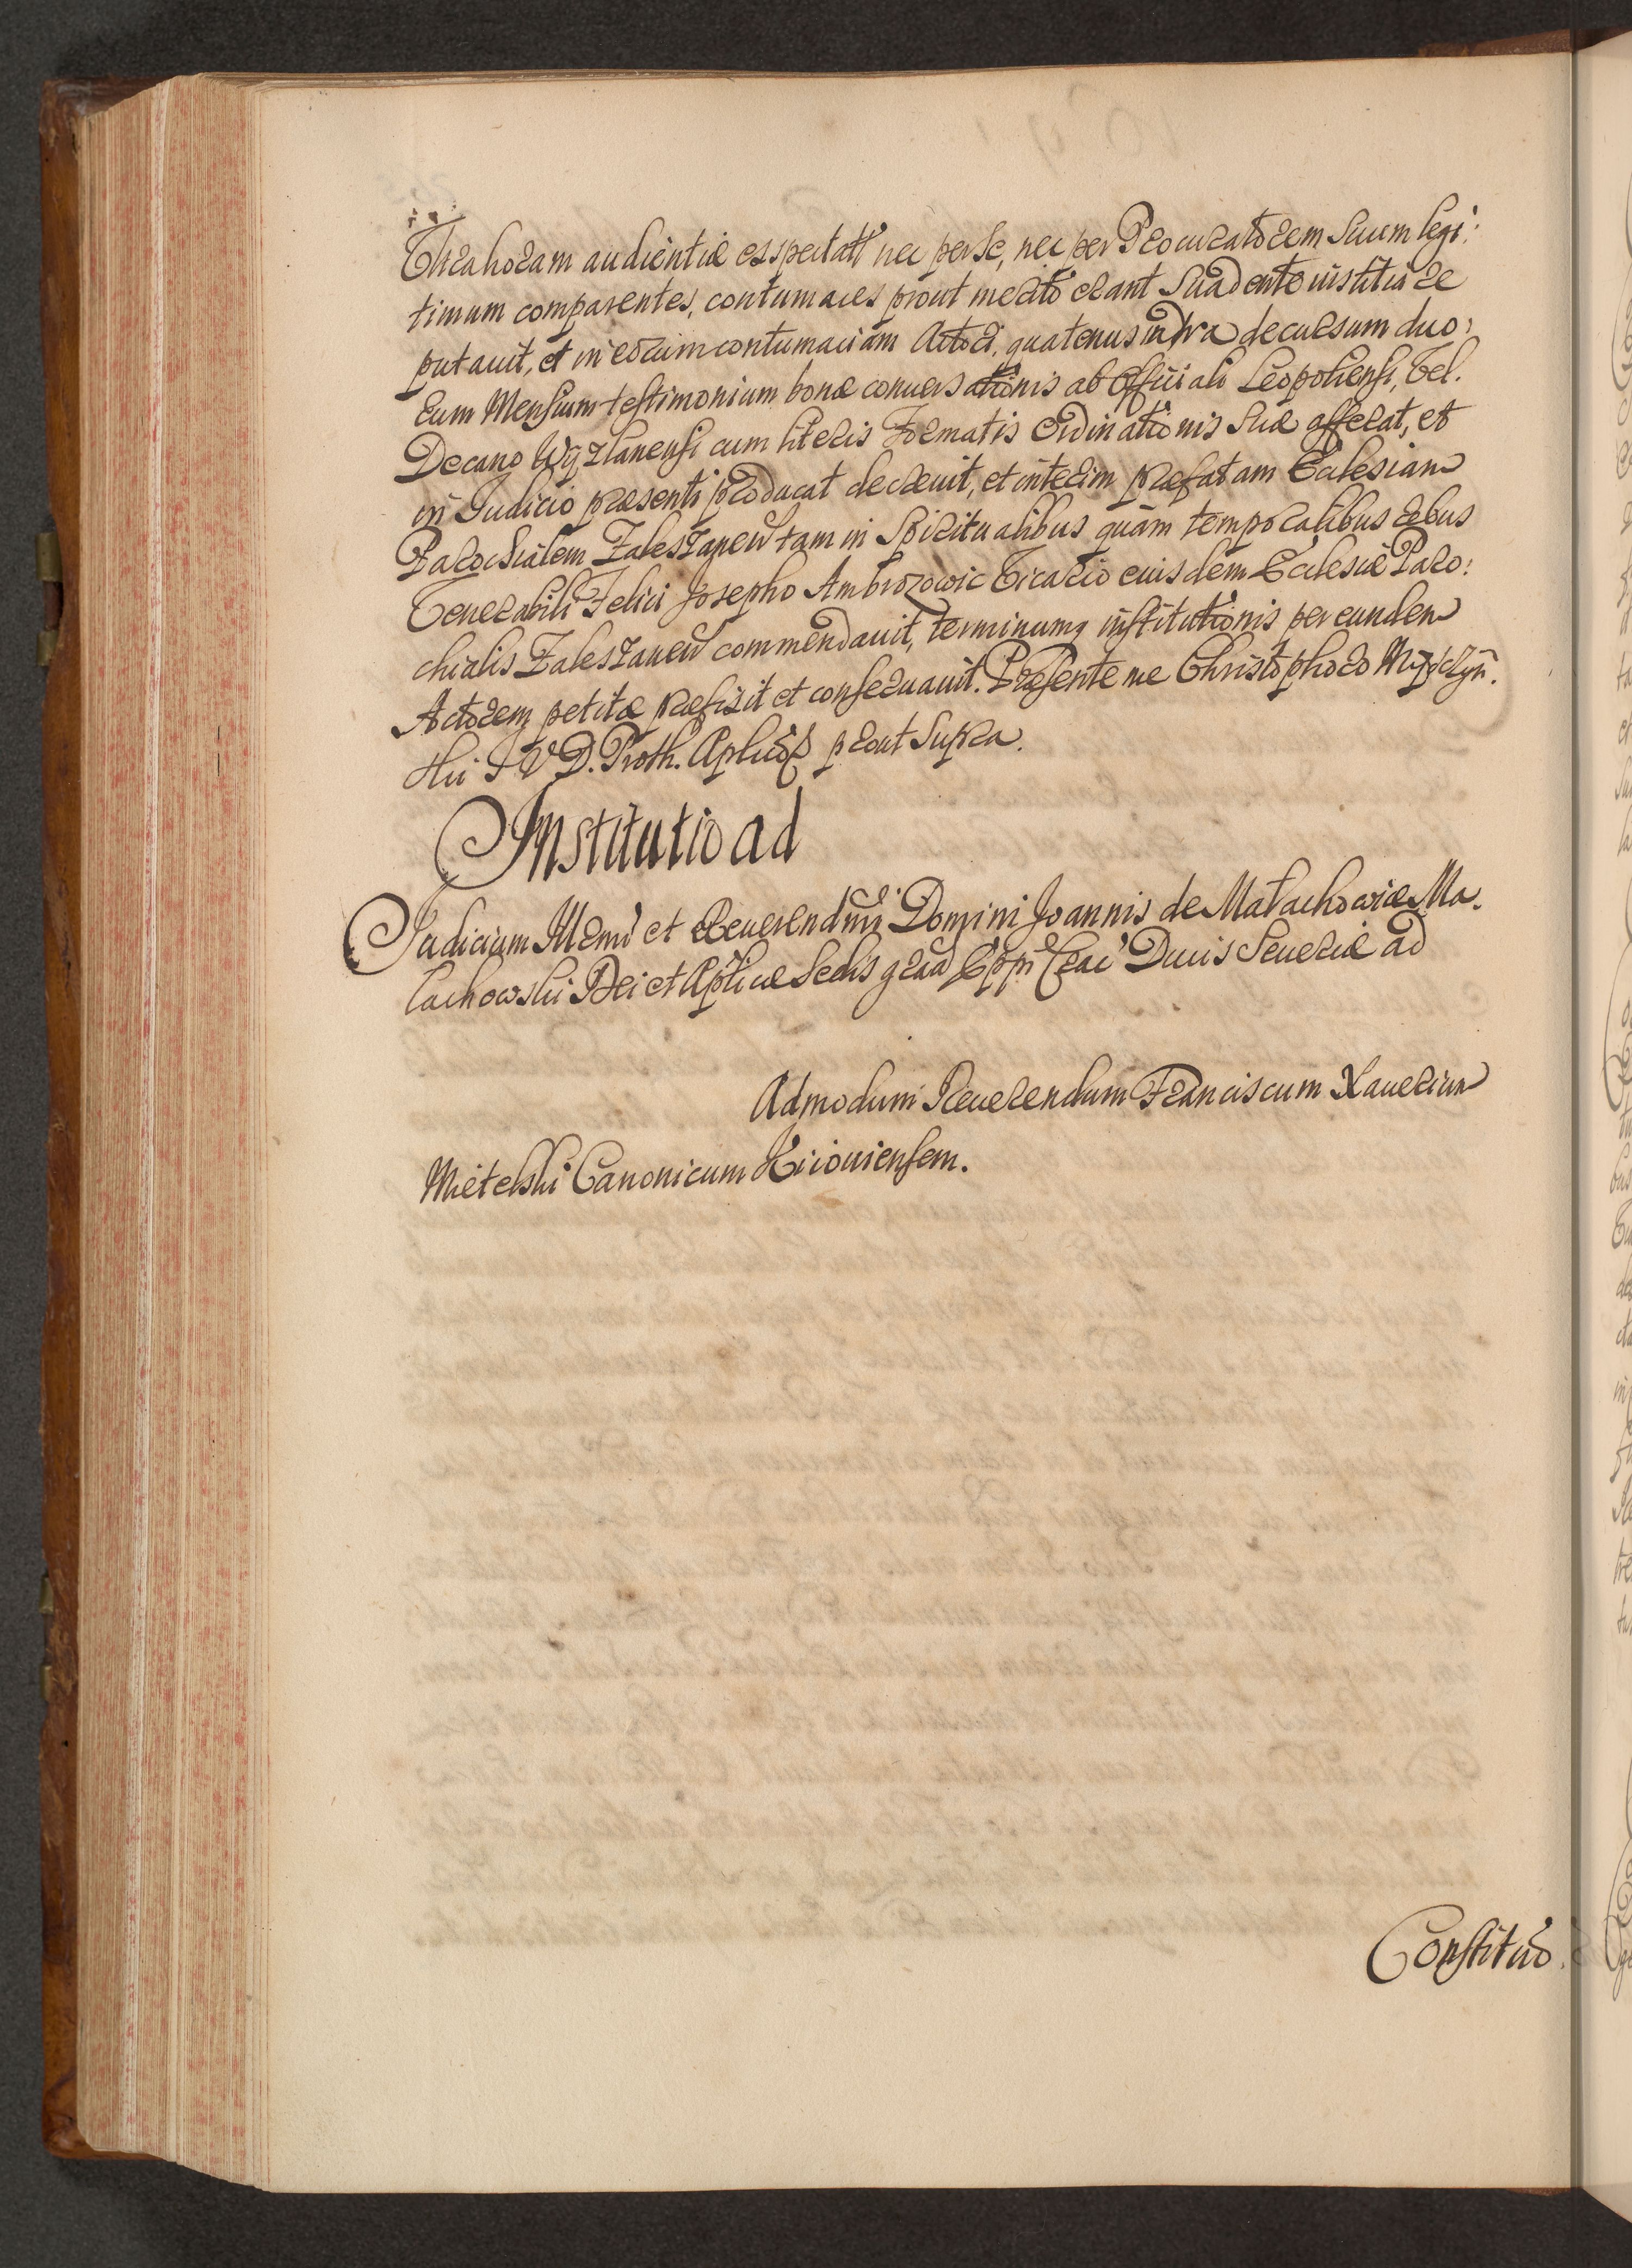 Ultra horam audientiæ exspectati nec per se, nec per Procuratorem Suum legi:
timum comparentes, contumaces prout merito erant Suadente iustitia re
putauit, et in eorum contumaciam Actori, quatenus intra decursum duo:
rum Mensium testimonium bonæ conuersationis ab Officiali Leopoliensi, Vel.
Decano Wyzlanensi cum literis Formatis Ordinationis Suæ afferat, et
in Iudicio præsenti producat decreuit, et interim præfatam Ecclesiam
Parochialem Zaleszaneū tam in Spiritualibus quàm temporalibus rebus
Venerabili Felici Josepho Ambrozowic Vicario eiusdem Ecclesiæ Paro:
chialis Zaleszaneū commendauit, terminumq institutionis per eundem
Actorem petitæ præfixit et conseruauit. Præsente me Christophoro
ski I V D. Proth. Aplico prout Supra.
Institutio ad
Iudicium Illmi et Reuerendmi Domini Joannis de Małachowice Ma.
łachowski Dei et Aplicæ Sedis graa Eppi Crac Ducis Seueriæ ad
Admodum Reuerendum Franciscum Xauerium
Mietelski Canonicum Kiiouiensem.
Constituo.